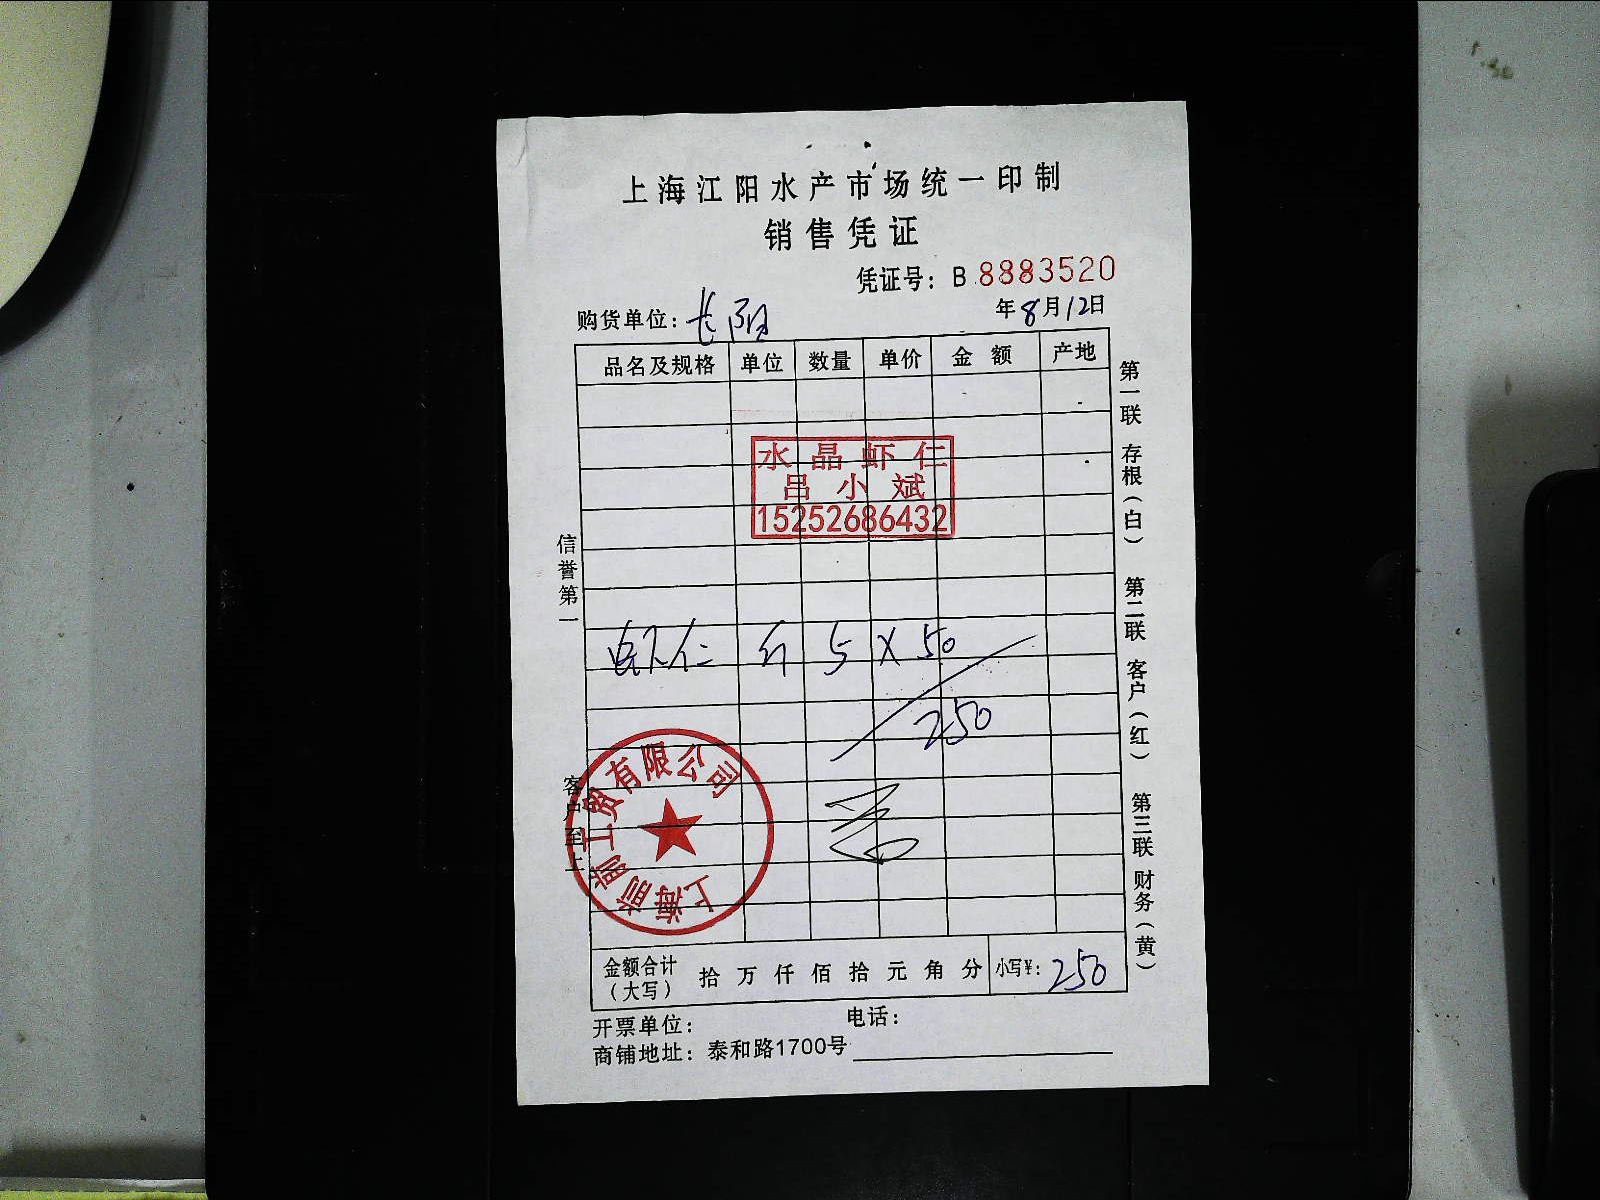 上海江阳水产市场统一印制
销售凭证
凭证号：B 8883520
购货单位：长阳 年8月12日
品名及规格 单位 数量 单价 金额 产地
水晶虾仁
吕小斌
15252686432
虾仁 斤 5 X 50
250
上海前前工贸有限公司
金额合计（大写） 拾 万 仟 佰 拾 元 角 分 小写¥：250
开票单位： 电话：
商铺地址：泰和路1700号
信誉第一
客户至上
第一联 存根（白） 第二联 客户（红） 第三联 财务（黄）